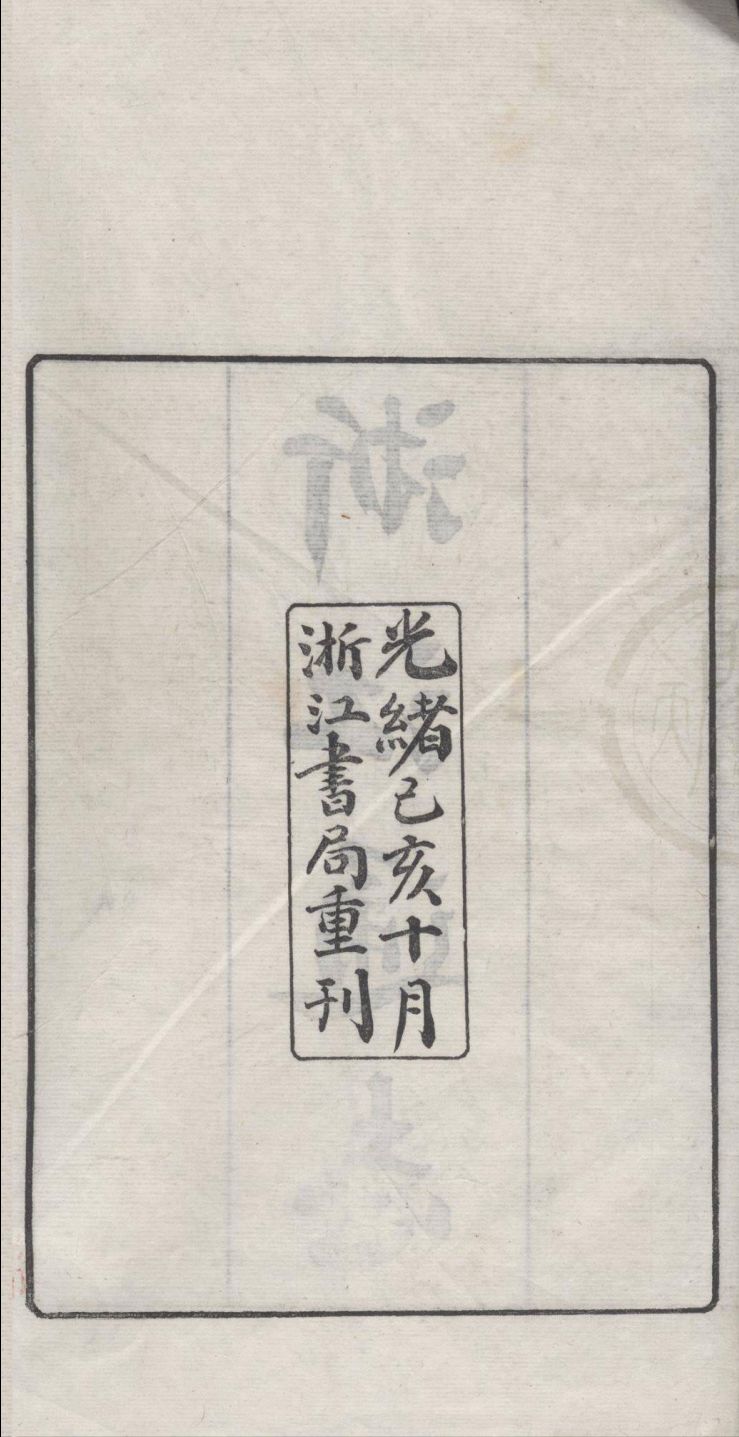 光緒己亥十月
浙江書局重刊